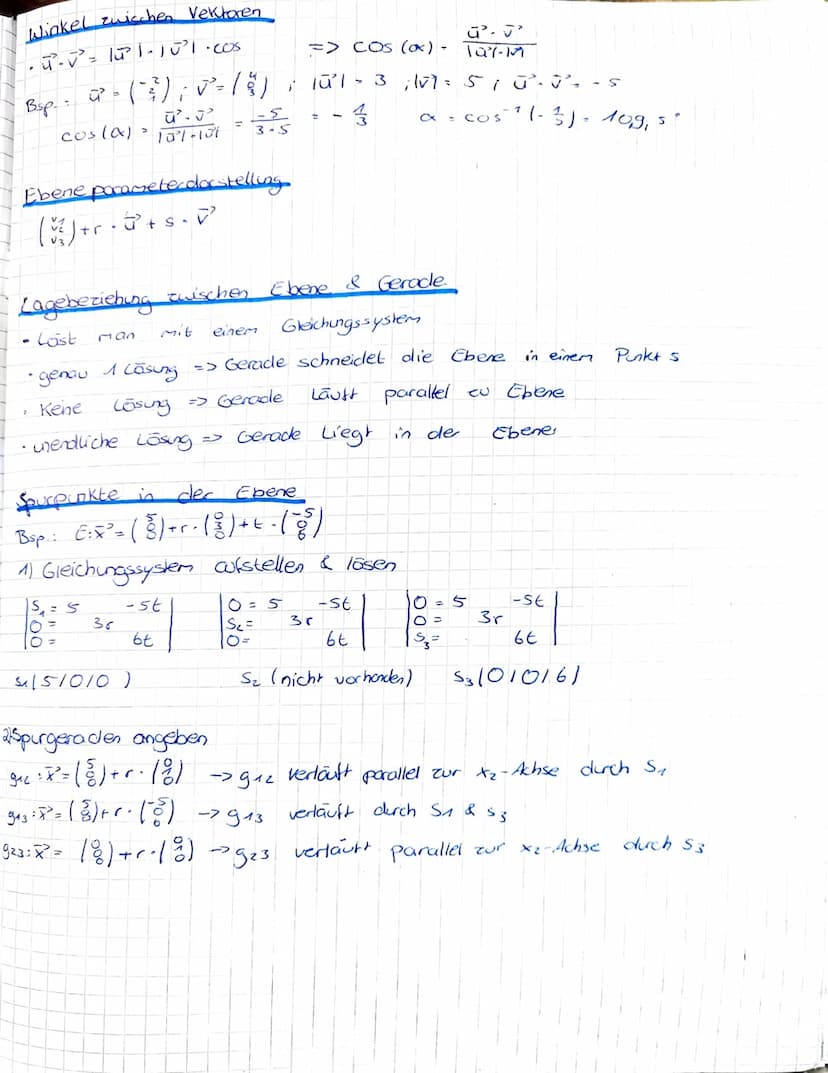 Winkel zwischen Vektoren
· u⃗·v⃗ = |u⃗|·|v⃗|·cos => cos(α) = u⃗·v⃗ / |u⃗|·|v⃗|
Bsp.: u⃗ = (-2 2 1) ; v⃗ = (4 0 3) ; |u⃗| = 3 ; |v⃗| = 5 ; u⃗·v⃗ = -5
cos(α) = u⃗·v⃗ / |u⃗|·|v⃗| = -5 / 3·5 = -1/3 α = cos⁻¹(-1/3) = 109,5°
Ebene parameterdarstellung
(v1 v2 v3) + r · u⃗ + s · v⃗
Lagebeziehung zwischen Ebene & Gerade
· Löst man mit einem Gleichungssystem
· genau 1 Lösung => Gerade schneidet die Ebene in einem Punkt s
· Keine Lösung => Gerade Läuft parallel zu Ebene
· unendliche Lösung => Gerade Liegt in der Ebene
Spurpunkte in der Ebene
Bsp.: E: x⃗ = (5 0 0) + r · (0 3 0) + t · (-5 0 6)
1) Gleichungssystem aufstellen & lösen
|S₁ = 5 -5t| |0 = 5 -5t| |0 = 5 -5t|
|0 = 3r| |S₂ = 3r| |0 = 3r|
|0 = 6t| |0 = 6t| |S₃ = 6t|
S₁(5/0/0) S₂ (nicht vorhanden) S₃(0/0/6)
2) Spurgeraden angeben
g₁₂: x⃗ = (5 0 0) + r · (0 1 0) -> g₁₂ verläuft parallel zur x₂-Achse durch S₁
g₁₃: x⃗ = (5 0 0) + r · (-5 0 6) -> g₁₃ verläuft durch S₁ & S₃
g₂₃: x⃗ = (0 0 6) + r · (0 1 0) -> g₂₃ verläuft parallel zur x₂-Achse durch S₃